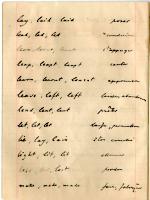 lay, laid laid poser
lead, led, led conduire
lean, leant, leant s'appuyer
leap, leapt leapt sauter
learn, learnt, learnt apprendre
leave, left, left
lend, lent, lent prêter
let, let, let
lie, lay, lain
light, lit, lit allumer
lose, lost, lost perdre
make, made, made faire, fabriquer